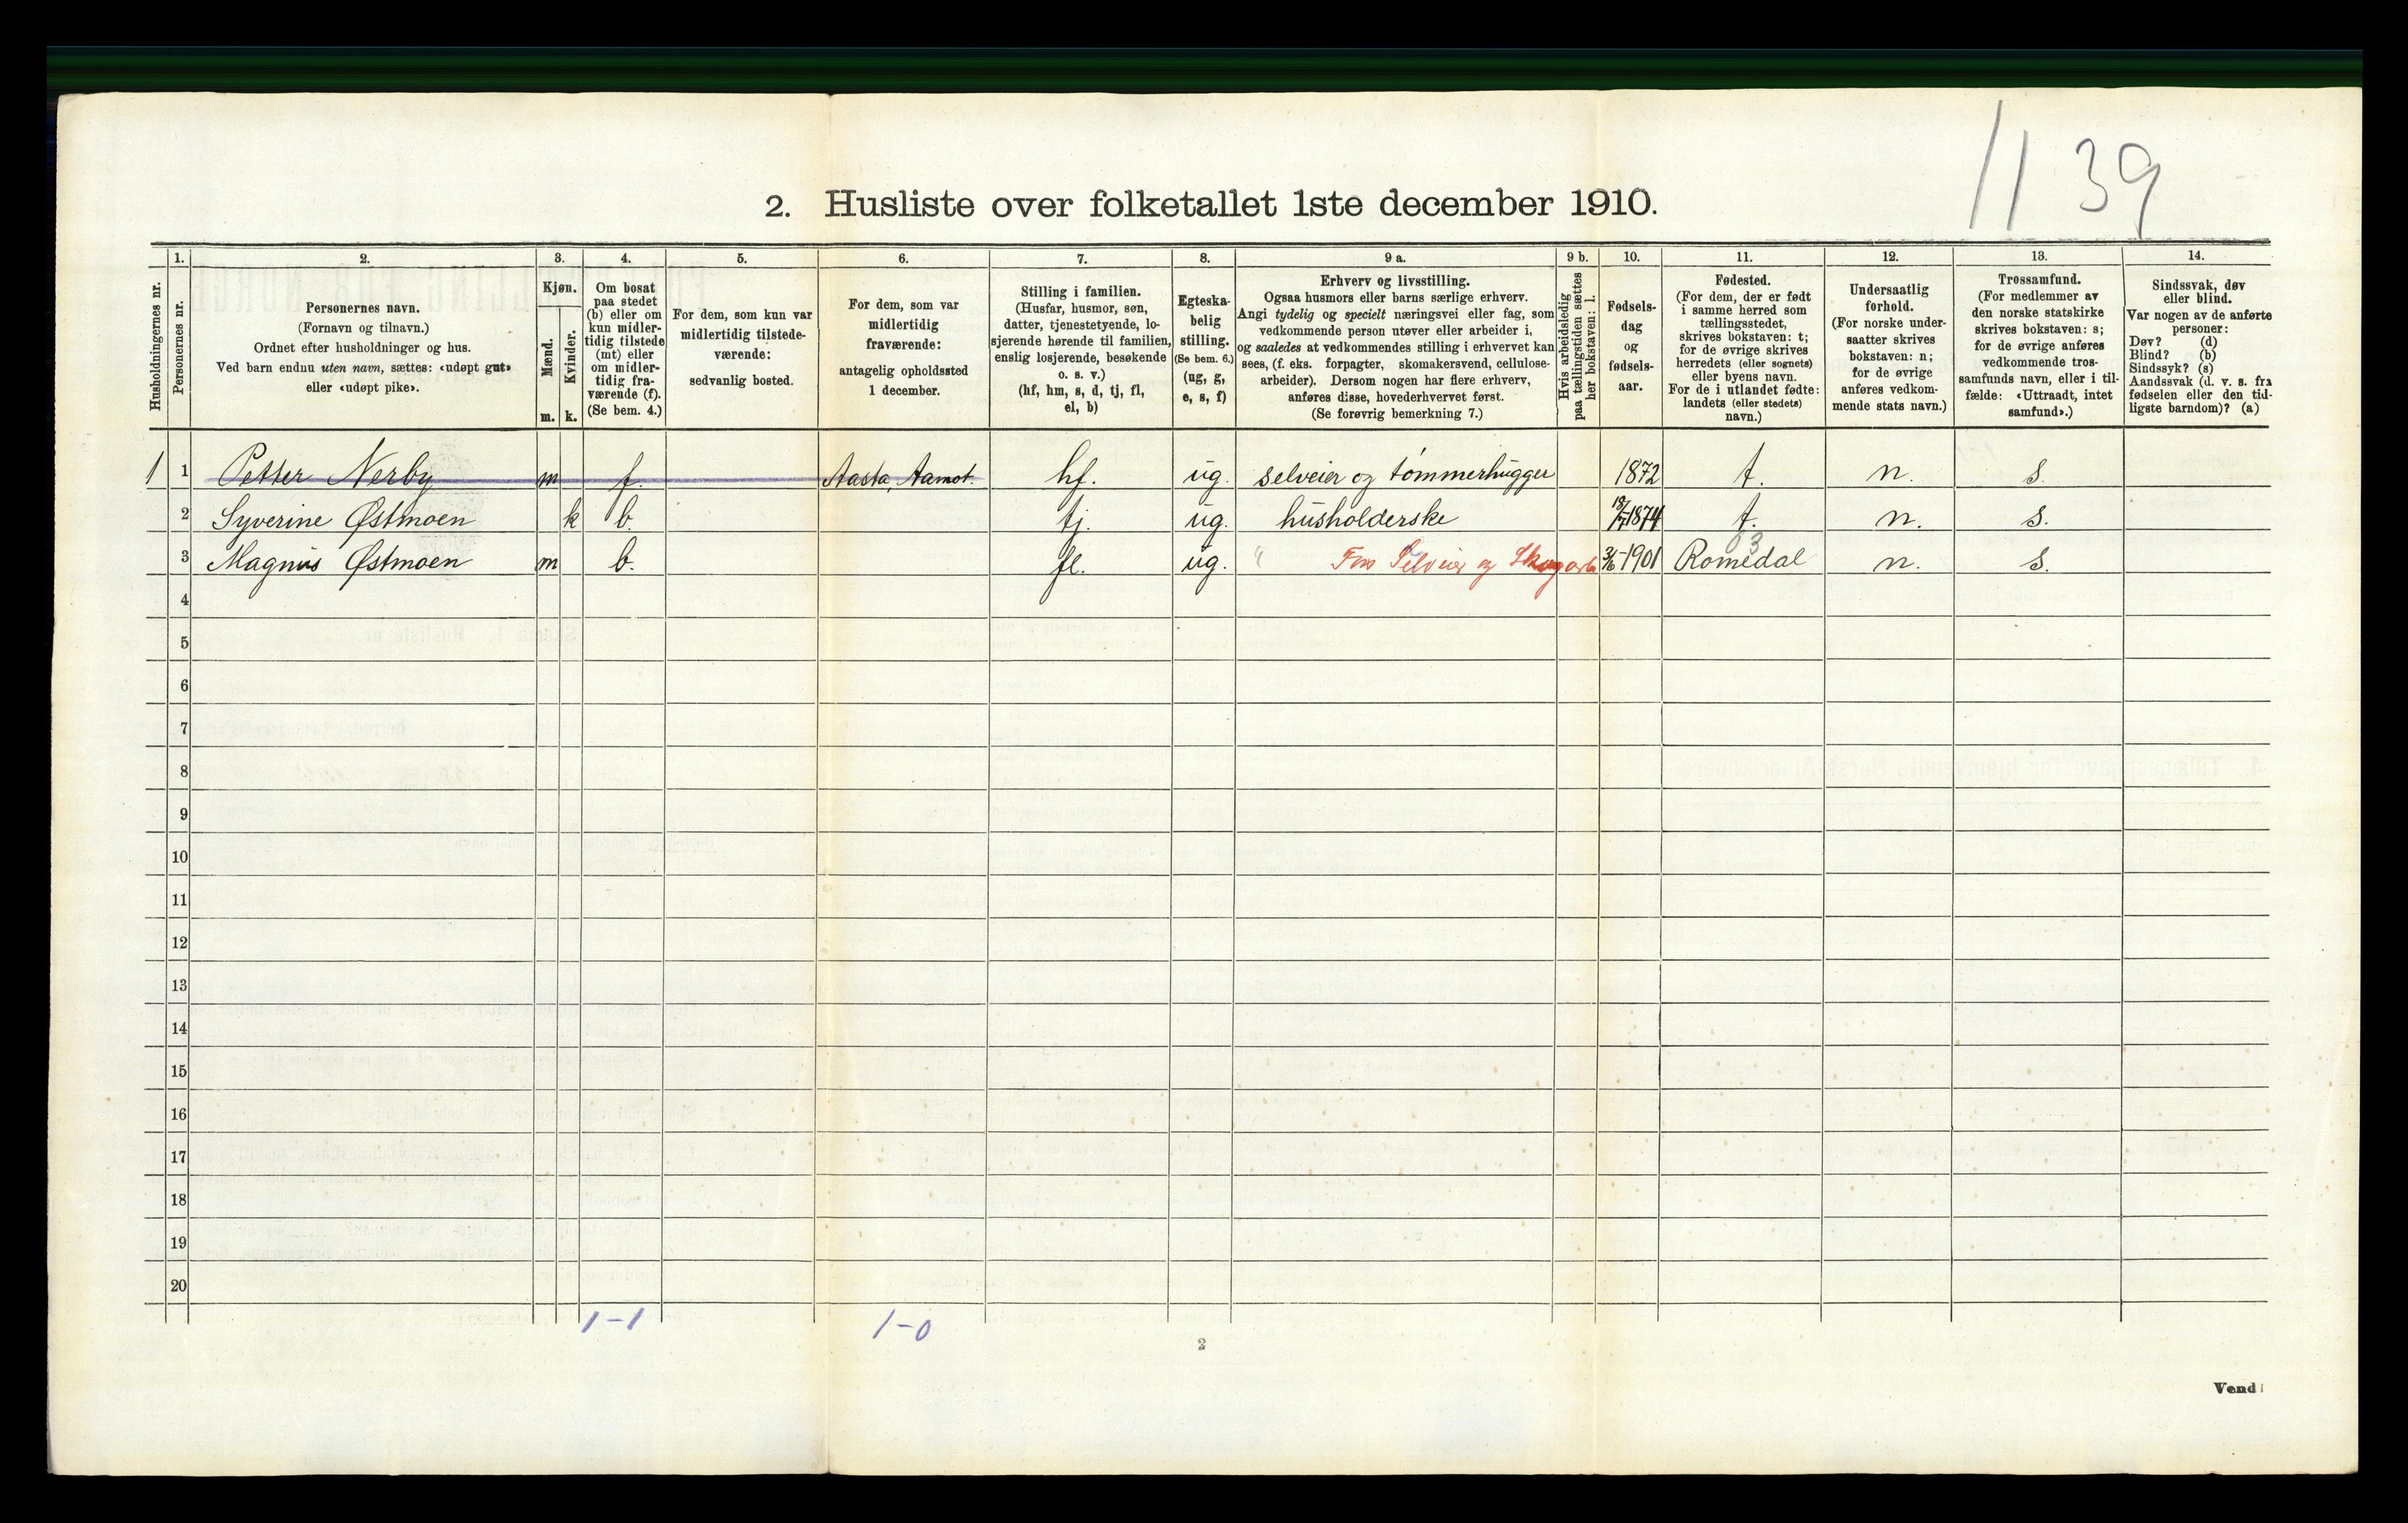 11 39
2. Husliste over folketallet 1ste december 1910.
Husholdningernes nr.
1.
Personernes nr.
2.
Personernes navn.
(Fornavn og tilnavn.)
Ordnet efter husholdninger og hus.
Ved barn endnu uten navn, sættes: «udøpt gut»
eller «udøpt pike».
3.
Kjøn.
Mænd.
Kvinder.
m. k.
4.
Om bosat
paa stedet
(b) eller om
kun midler-
tidig tilstede
(mt) eller
om midler-
tidig fra-
værende (f).
(Se bem. 4.)
5.
For dem, som kun var
midlertidig tilstede-
værende:
sedvanlig bosted.
6.
For dem, som var
midlertidig
fraværende:
antagelig opholdssted
1 december.
7.
Stilling i familien.
(Husfar, husmor, søn,
datter, tjenestetyende, lo-
sjerende hørende til familien,
enslig losjerende, besøkende
o. s. v.)
(hf, hm, s, d, tj, fl,
el, b)
8.
Egteska-
belig
stilling.
(Se bem. 6.)
(ug, g,
e, s, f)
9 a.
Erhverv og livsstilling.
Ogsaa husmors eller barns særlige erhverv.
Angi tydelig og specielt næringsvei eller fag, som
vedkommende person utøver eller arbeider i,
og saaledes at vedkommendes stilling i erhvervet kan
sees, (f. eks. forpagter, skomakersvend, cellulose-
arbeider). Dersom nogen har flere erhverv,
anføres disse, hovederhvervet først.
(Se forøvrig bemerkning 7.)
9 b.
Hvis arbeidsledig
paa tællingstiden sættes
her bokstaven: l.
10.
Fødsels-
dag
og
fødsels-
aar.
11.
Fødested.
(For dem, der er født
i samme herred som
tællingsstedet,
skrives bokstaven: t;
for de øvrige skrives
herredets (eller sognets)
eller byens navn.
For de i utlandet fødte:
landets (eller stedets)
navn.)
12.
Undersaatlig
forhold.
(For norske under-
saatter skrives
bokstaven: n;
for de øvrige
anføres vedkom-
mende stats navn.)
13.
Trossamfund.
(For medlemmer av
den norske statskirke
skrives bokstaven: s;
for de øvrige anføres
vedkommende tros-
samfunds navn, eller i til-
fælde: «Uttraadt, intet
samfund».)
14.
Sindssvak, døv
eller blind.
Var nogen av de anførte
personer:
Døv? (d)
Blind? (b)
Sindssyk? (s)
Aandssvak (d. v. s. fra
fødselen eller den tid-
ligste barndom)? (a)
1 1 Petter Nerby m f. Aasta, Aamot. hf. ug. selveier og tømmerhugger 1872 t. n. s.
2 Syverine Østmoen k b. tj. ug. husholderske 18/7 1874 t. n. s.
63
3 Magnus Østmoen m b. fl. ug. " Fors Selveier og Skogarb 3/6-1901 Romedal n. s.
4
5
6
7
8
9
10
11
12
13
14
15
16
17
18
19
20
1-1 1-0
2
Vend!